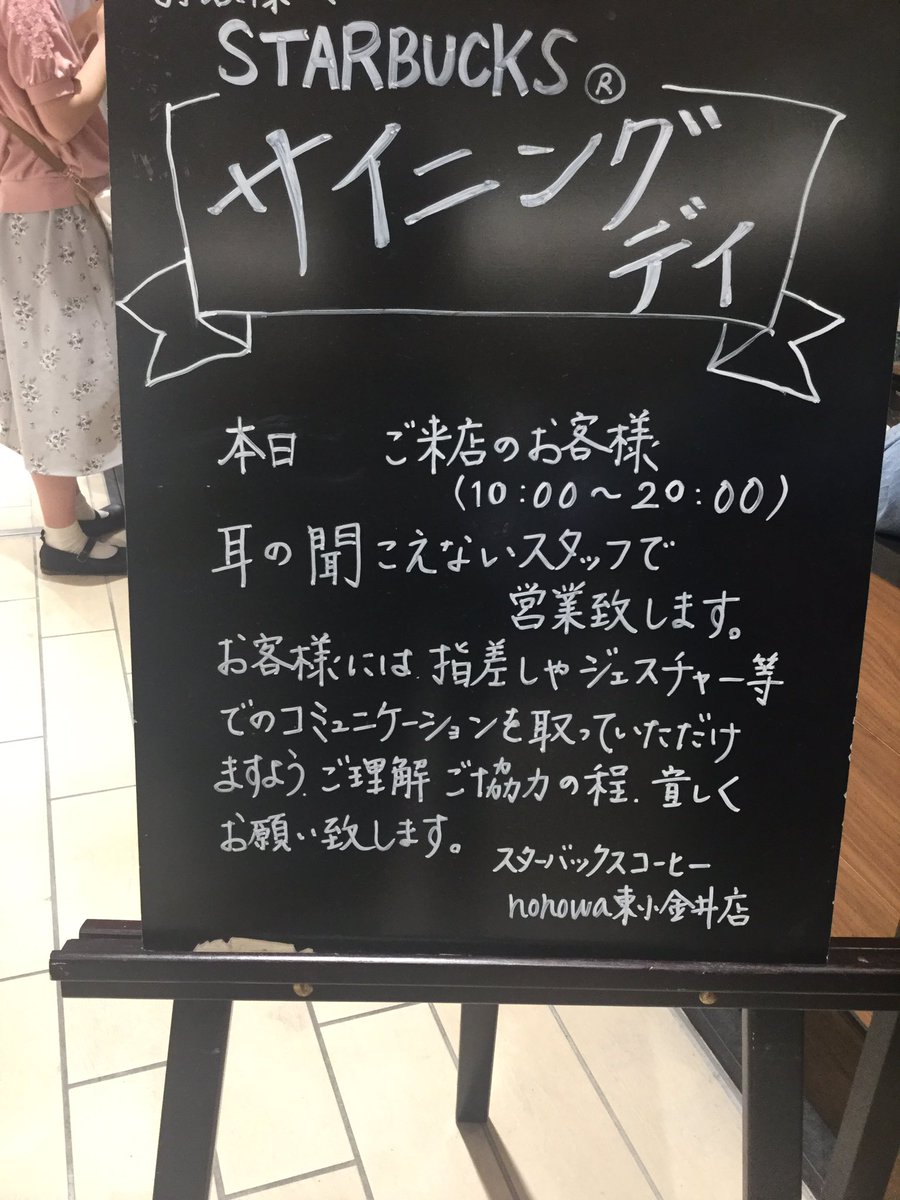 STARBUCKS®
サイニング
デイ
本日 ご来店のお客様
(10:00～20:00)
耳の聞こえないスタッフで
営業致します。
お客様には、指差しやジェスチャー等
でのコミュニケーションを取っていただけ
ますよう、ご理解ご協力の程、宜しく
お願い致します。
スターバックスコーヒー
nonowa東小金井店